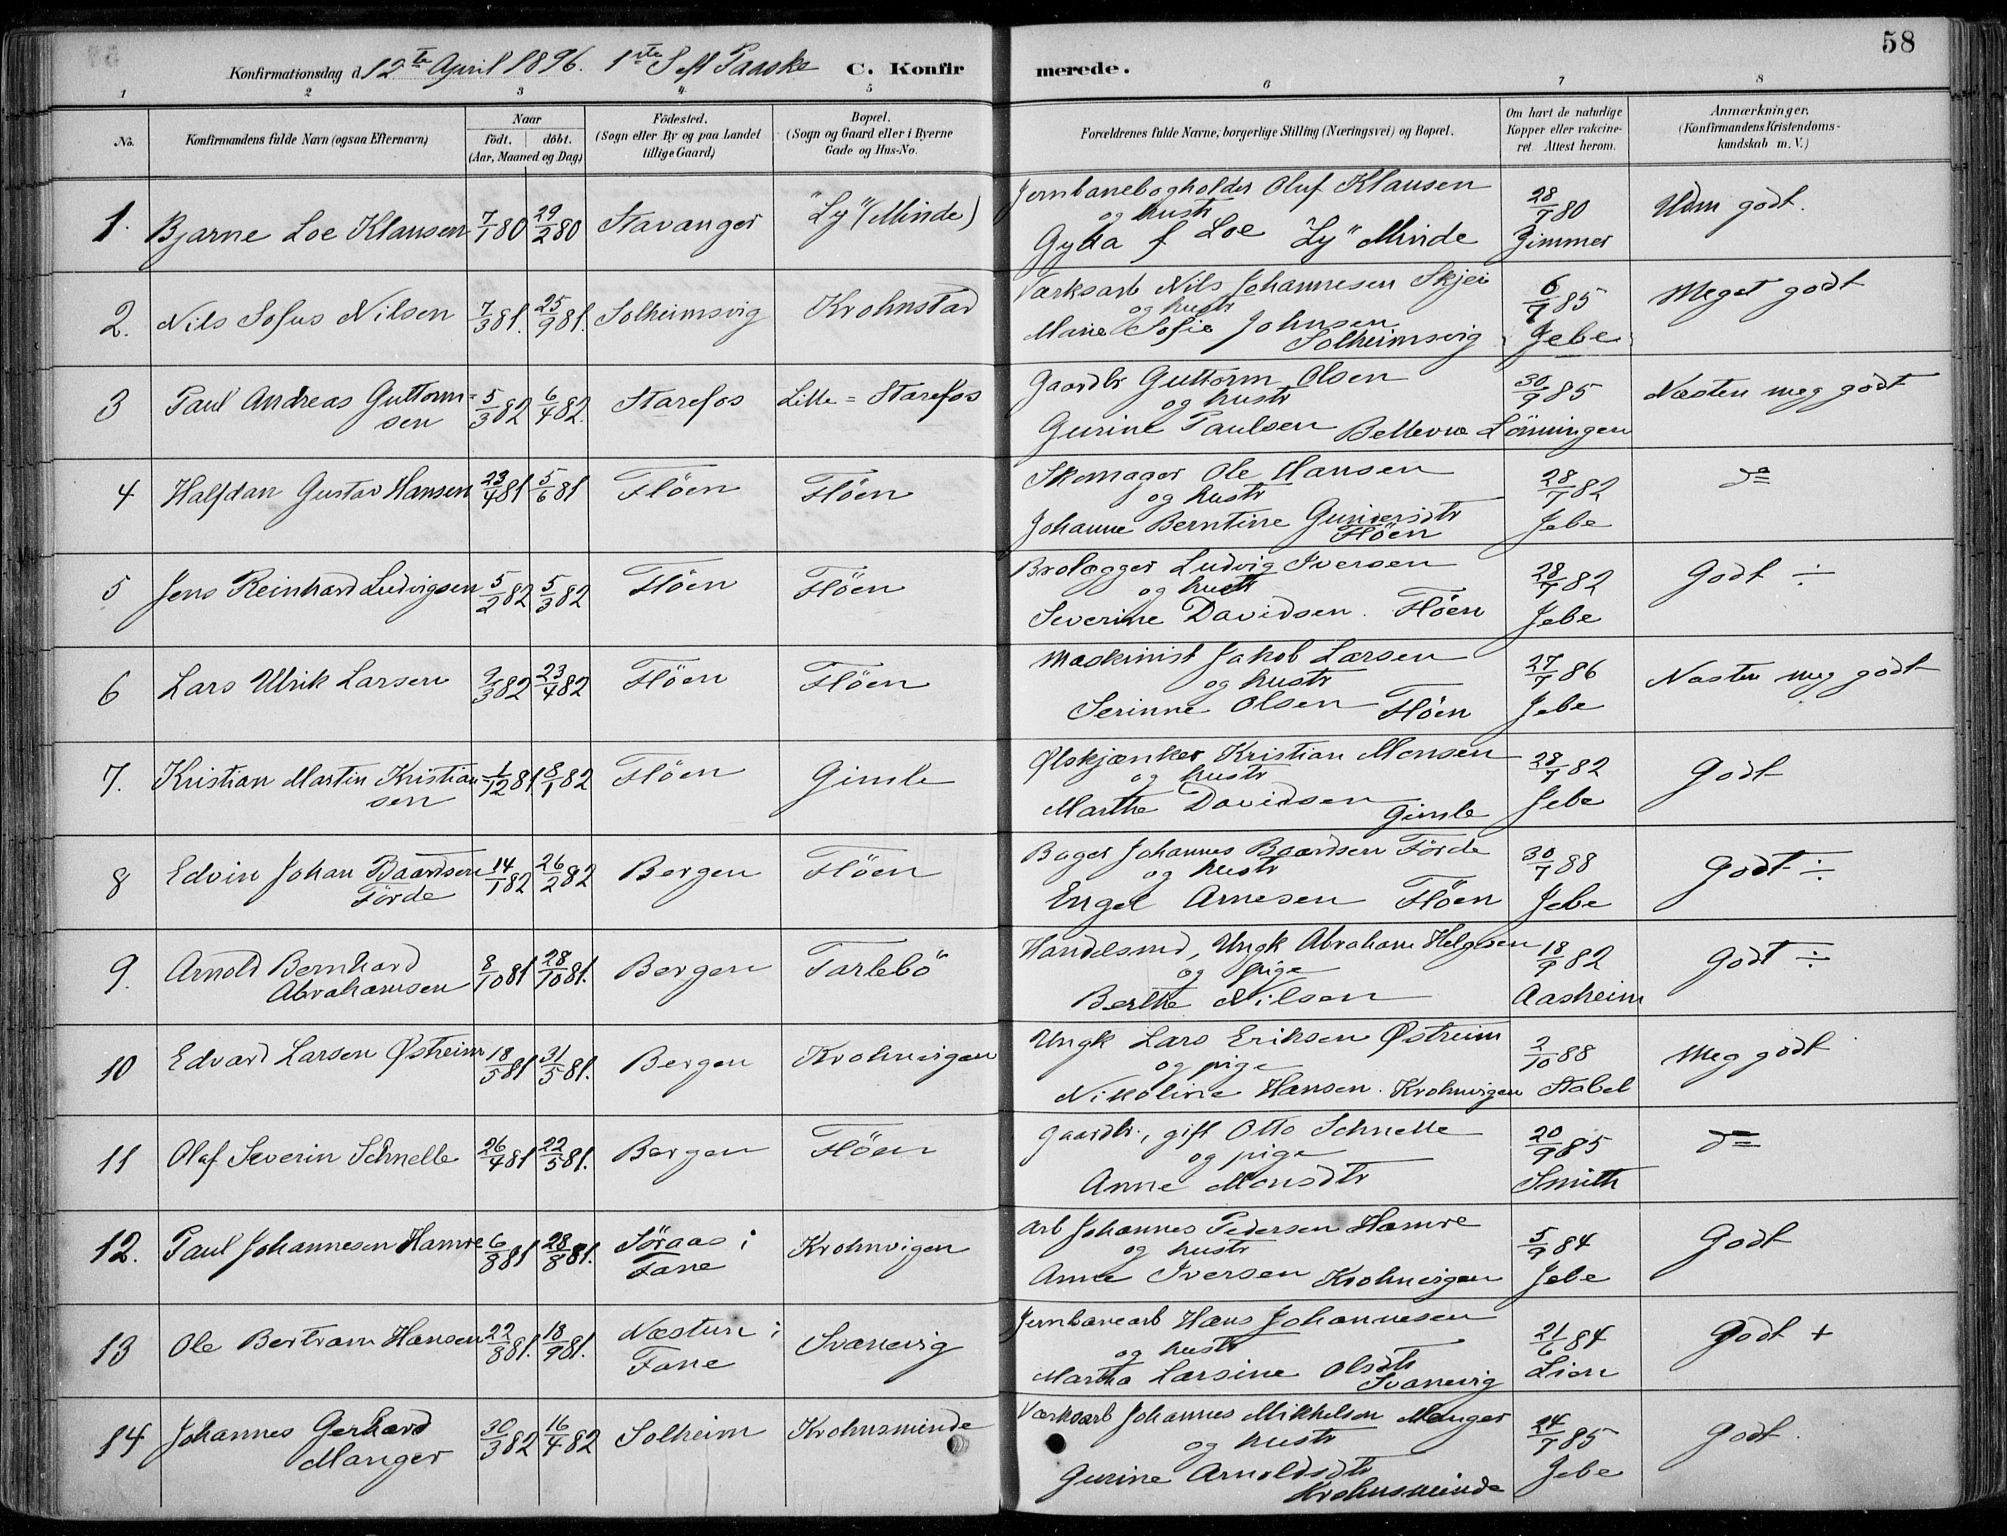 58
Konfirmationsdag d. 12te April 1896. 1ste S eft Paaske C. Konfirmerede.
1 2 3 4 5 6 7 8
No.
Konfirmandens fulde Navn (ogsaa Efternavn)
Naar
født. døbt.
(Aar, Maaned og Dag)
Fødested.
(Sogn eller By og paa Landet
tillige Gaard)
Bopæl.
(Sogn og Gaard eller i Byerne
Gade og Hus-No.
Forældrenes fulde Navne, borgerlige Stilling (Næringsvei) og Bopæl.
Om havt de naturlige
Kopper eller vakcine-
ret. Attest herom.
Anmærkninger.
(Konfirmandens Kristendoms-
kundskab m. V.)
1. Bjarne Loe Klausen 7/1 80 29/2 80 Stavanger "Ly" (Minde)
Jernbanebogholder Oluf Klausen
og hustr
Gyda f Loe "Ly" Minde
28/7 80
Zimmer
Udm godt.
2. Nils Sofus Nilsen 7/3 81. 25/9 81. Solheimsvig Krohnstad
Værksarb Nils Johannesen Skjei
og hustr
Marie Sofie Johnsen
Solheimsvig
6/7 85
Jebe
Meget godt
3 Paul Andreas Guttorm-
sen
5/3 82 6/4 82. Starefos Lille = Starefos
Gaardbr Guttorm Olsen
og hustr
Gurine Paulsen Bellevue
30/9 85
Lönningen
Næsten meg godt
4 Halfdan Gustav Hansen 23/4 81 5/6 81 Flöen Flöen
Skomager Ole Hansen
og hustr
Johanne Berntine Gundersdtr
Flöen
28/7 82
Jebe
do
5 Jens Reinhard Ludvigsen 5/2 82 5/3 82 Flöen Flöen
Brolægger Ludvig Iversen
og hustr
Severine Davidsen. Flöen
28/7 82
Jebe
Godt ÷
6 Lars Ulrik Larsen 7/3 82 23/4 82 Flöen Flöen
Maskinist Jakob Larsen
og hustr
Serinne Olsen Flöen
27/7 86
Jebe
Næsten meg godt
7. Kristian Martin Kristian-
sen
1/12 81. 8/1 82 Flöen Gimle
Ølskjænker Kristian Monsen
og hustr
Marthe Davidsen
Gimle
28/7 82
Jebe
Godt
8 Edvin Johan Baardsen
Förde
14/1 82 26/2 82 Bergen Flöen
Bager Johannes Baardsen Förde
og hustr
Engel Arnesen Flöen
30/7 88
Jebe
Godt ÷
9. Arnold Bernhard
Abrahamsen
8/10 81 28/10 81. Bergen Tarlebö
Handelsmd, Ungk Abraham Helgesen
og pige
Berthe Nilsen
18/9 82
Aasheim
Godt ÷
10 Edvard Larsen Østreim 18/5 81 31/5 81. Bergen Krohnvigen
Ungk Lars Eriksen Østreim
og pige
Nikoline Hansen. Krohnvigen
2/10 88
Stabel
Meg godt
11 Olaf Severin Schnelle 26/4 81 22/5 81. Bergen Flöen
Gaardbr, gift Otto Schnelle
og pige
Anne Monsdtr
20/9 85
Smith
do
12. Paul Johannesen Hamre 6/8 81 28/8 81. Söraas i
Fane
Krohnvigen
Arb Johannes Pedersen Hamre
og hustr
Anne Iversen Krohnvigen
5/9 84
Jebe
Godt
13 Ole Bertram Hansen 22/8 81. 18/9 81. Næstun i
Fane
Svanevig
Jernbanearb Hans Johannesen
og hustr
Martha Larsine Olsdtr
Svanevig
21/6 84
Lien
Godt +
14 Johannes Gerhard
Manger
30/3 82 16/4 82 Solheim Krohnsminde
Værksarb Johannes Mikkelsen Manger
og hustr
Gurine Arnoldsdtr
Krohnsminde
24/7 85
Jebe
Godt.